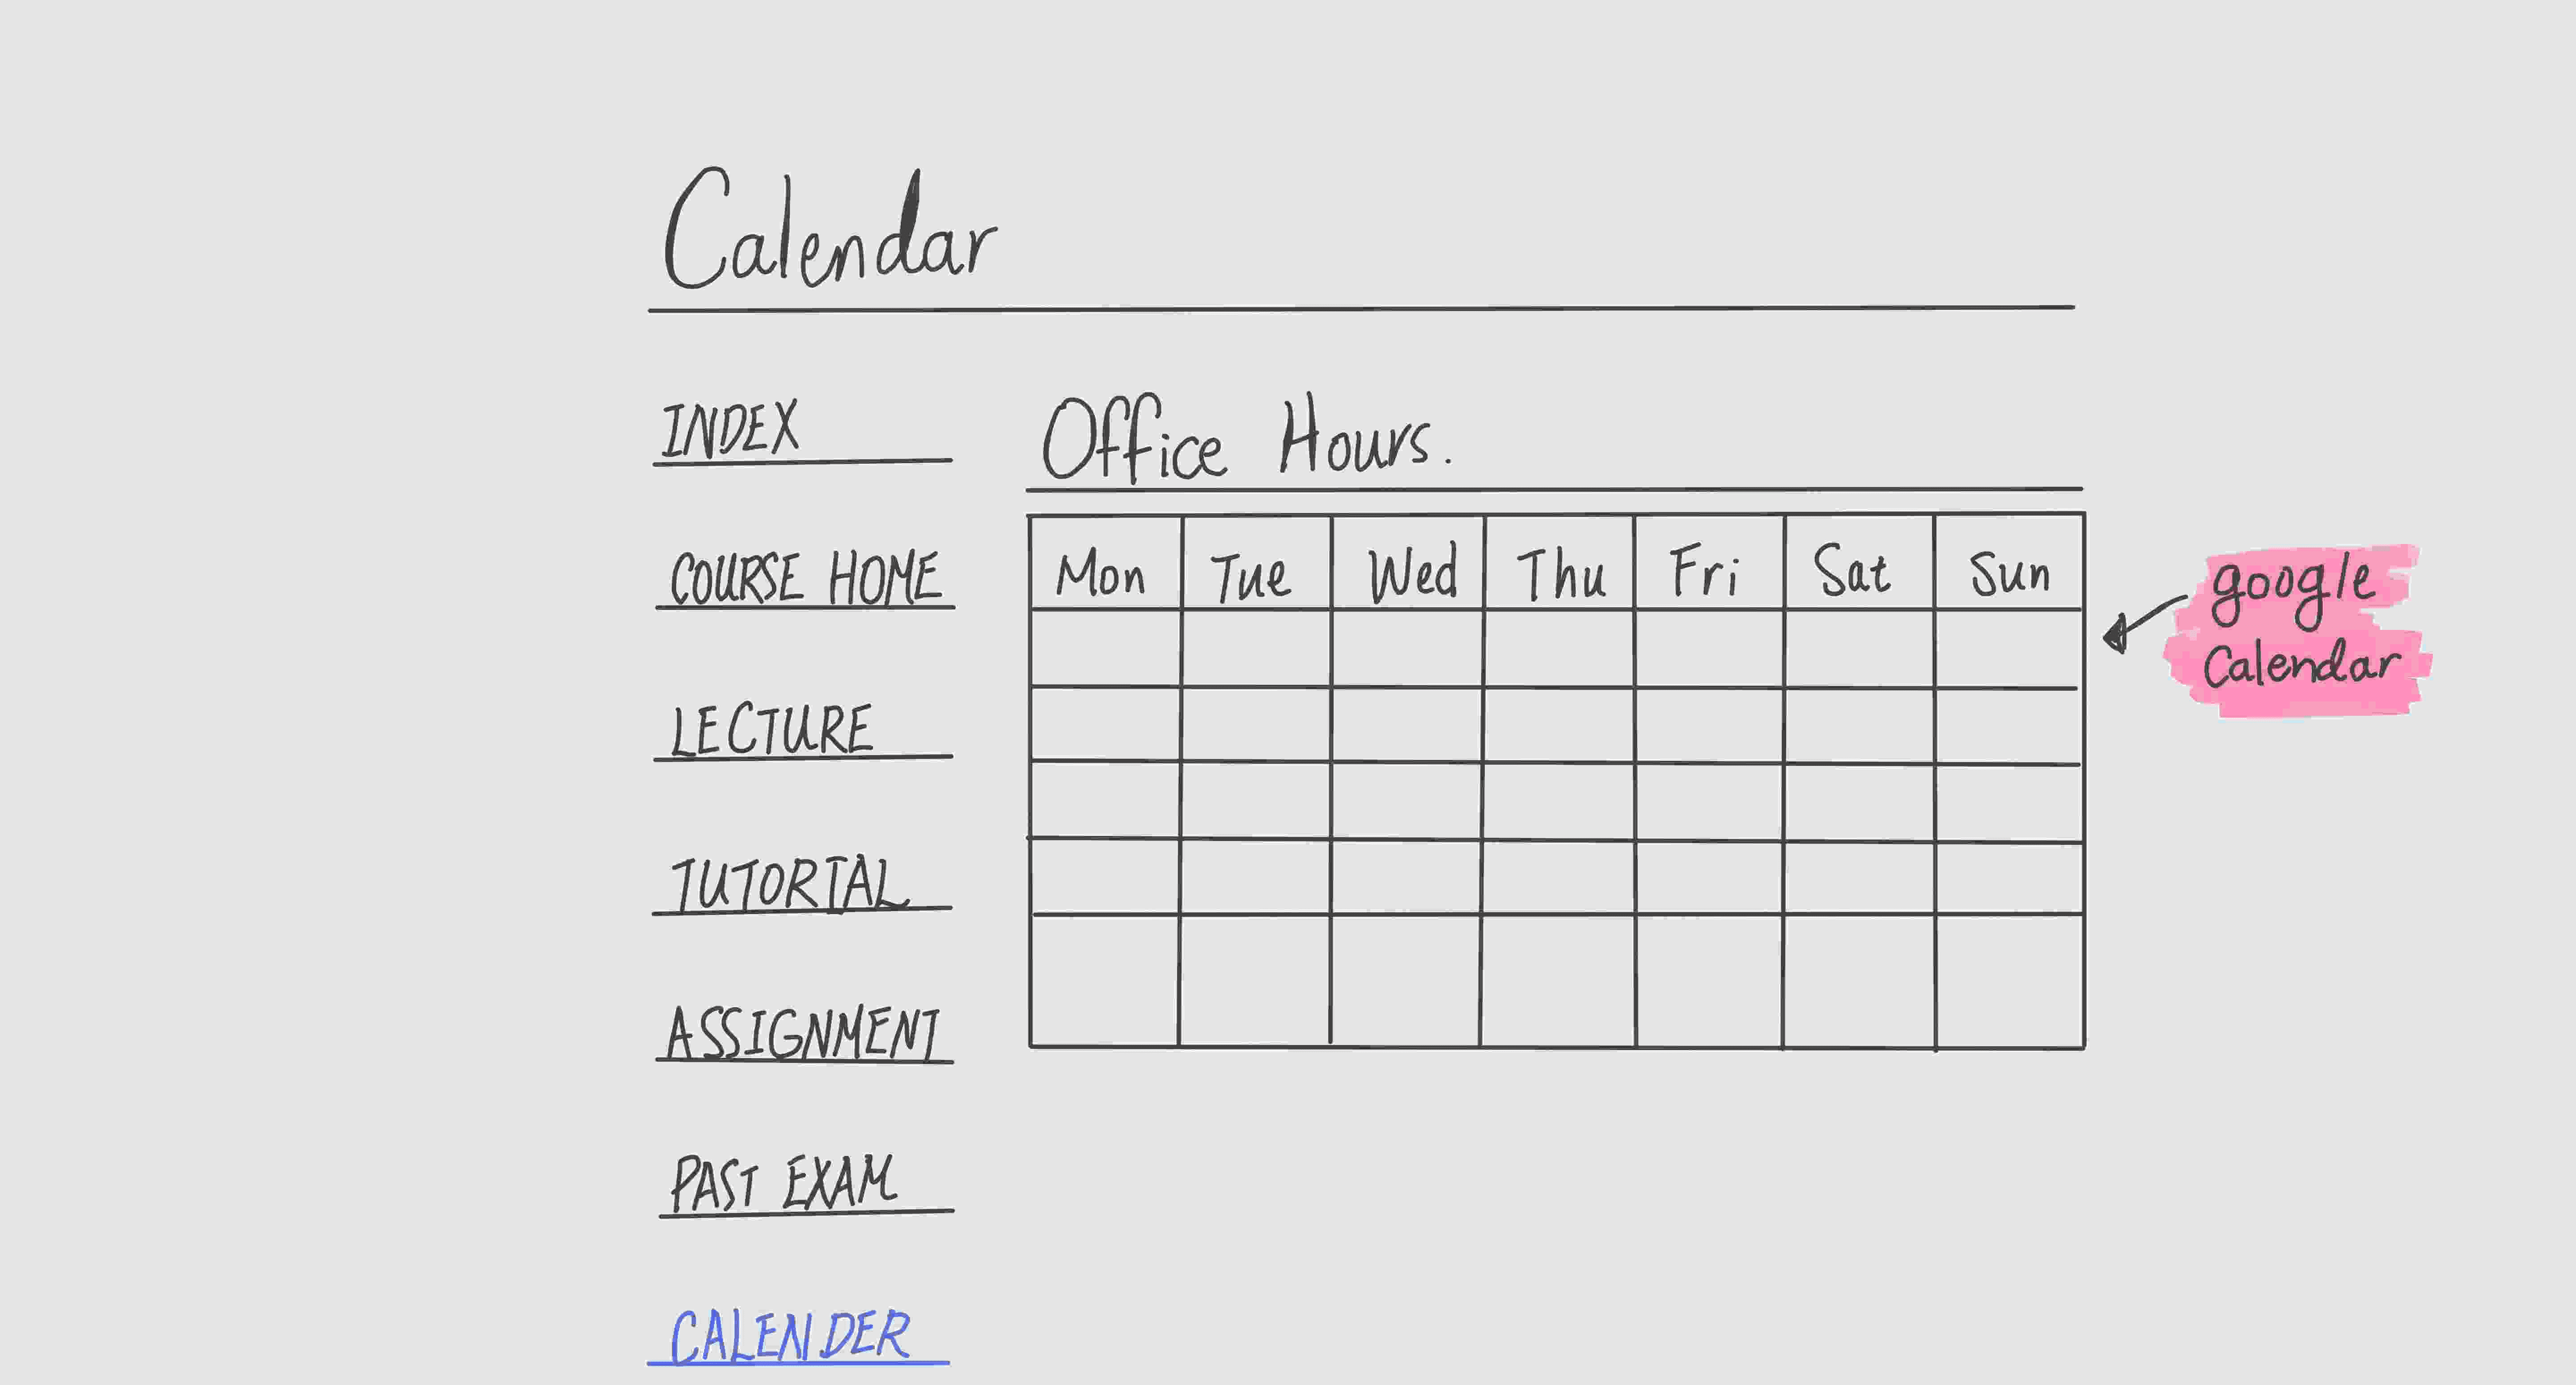 Calendar
INDEX
COURSE HOME
LECTURE
TUTORIAL
ASSIGNMENT
PAST EXAM
CALENDER
Office Hours.
Mon Tue Wed Thu Fri Sat Sun
google
Calendar